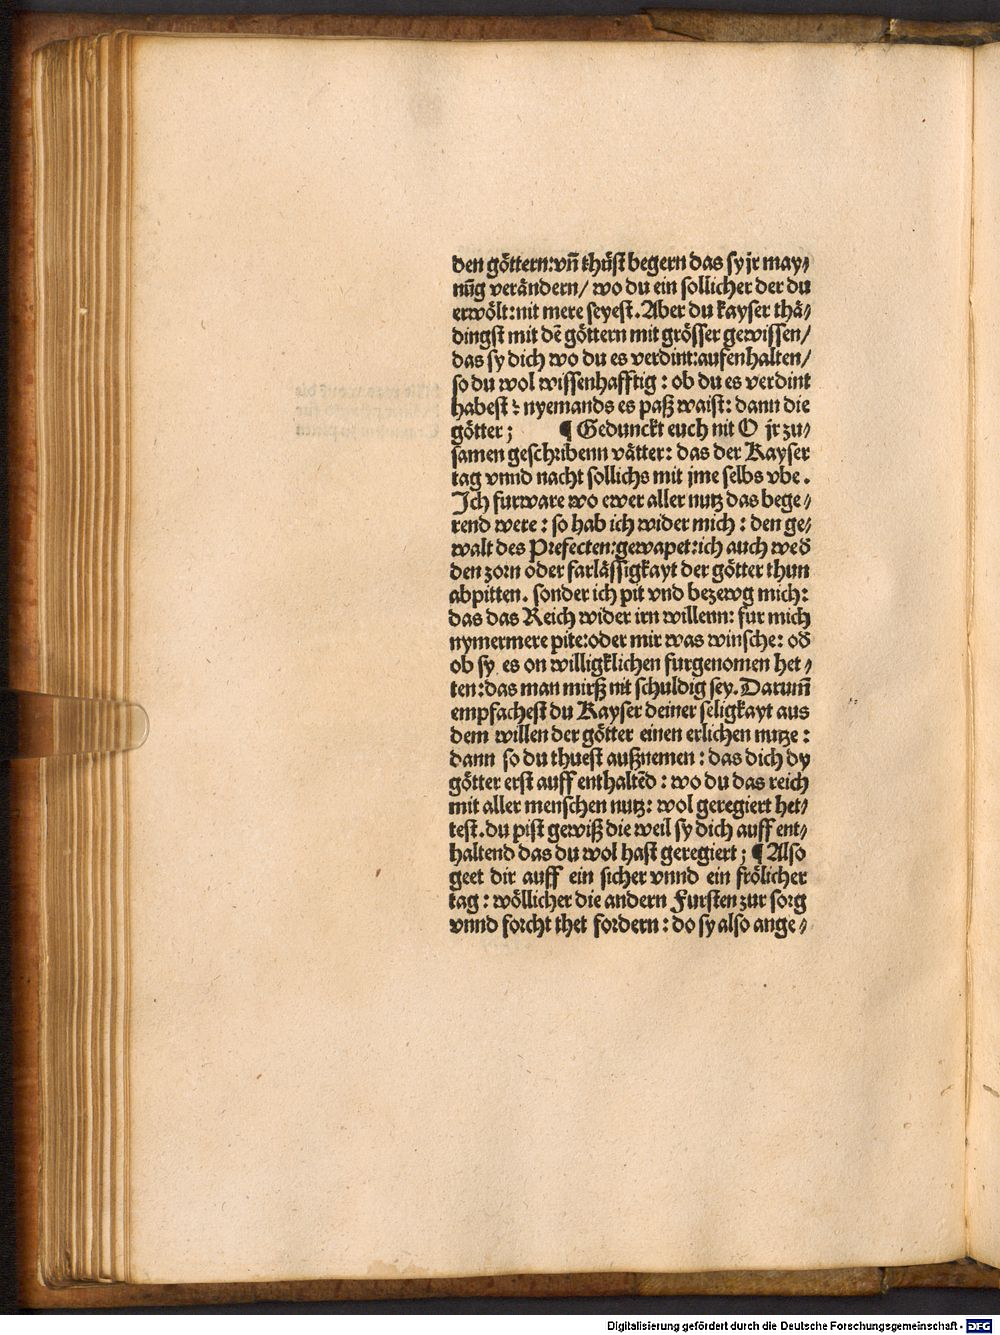 den göttern:vn̄ thüst begern das sy jr may⸗
nūg verändern/ wo du ein sollicher der du
erwölt:nit mere seyest. Aber du kayser thä⸗
dingst mit dē göttern mit grösser gewissen/
das sy dich wo du es verdint:aufenhalten/
so du wol wissenhafftig : ob du es verdint
habest : nyemands es paß waist: dann die
götter ; ¶ Gedunckt euch nit O jr zu⸗
samen geschribenn vätter: das der Kayser
tag vnnd nacht sollichs mit jme selbs vbe .
Ich furware wo ewer aller nutz das bege⸗
rend were : so hab ich wider mich : den ge⸗
walt des Prefecten:gewapet:ich auch wed̄
den zorn oder farlässigkayt der götter thun
abpitten. sonder ich pit vnd bezewg mich:
das das Reich wider irn willenn: fur mich
nymermere pite:oder mir was winsche: od̄
ob sy es on willigklichen furgenomen het⸗
ten:das man mirß nit schuldig sey. Darum̄
empfachest du Kayser deiner seligkayt aus
dem willen der götter einen erlichen nutze :
dann so du thuest außnemen : das dich dy
götter erst auff enthaltēd : wo du das reich
mit aller menschen nutz: wol geregiert het⸗
test. du pist gewiß die weil sy dich auff ent⸗
haltend das du wol hast geregiert ; ¶ Also
geet dir auff ein sicher vnnd ein frölicher
tag : wöllicher die andern Fursten zur sorg
vnnd forcht thet fordern : do sy also ange⸗
Digitalisierung gefördert durch die Deutsche Forschungsgemeinschaft - DFG